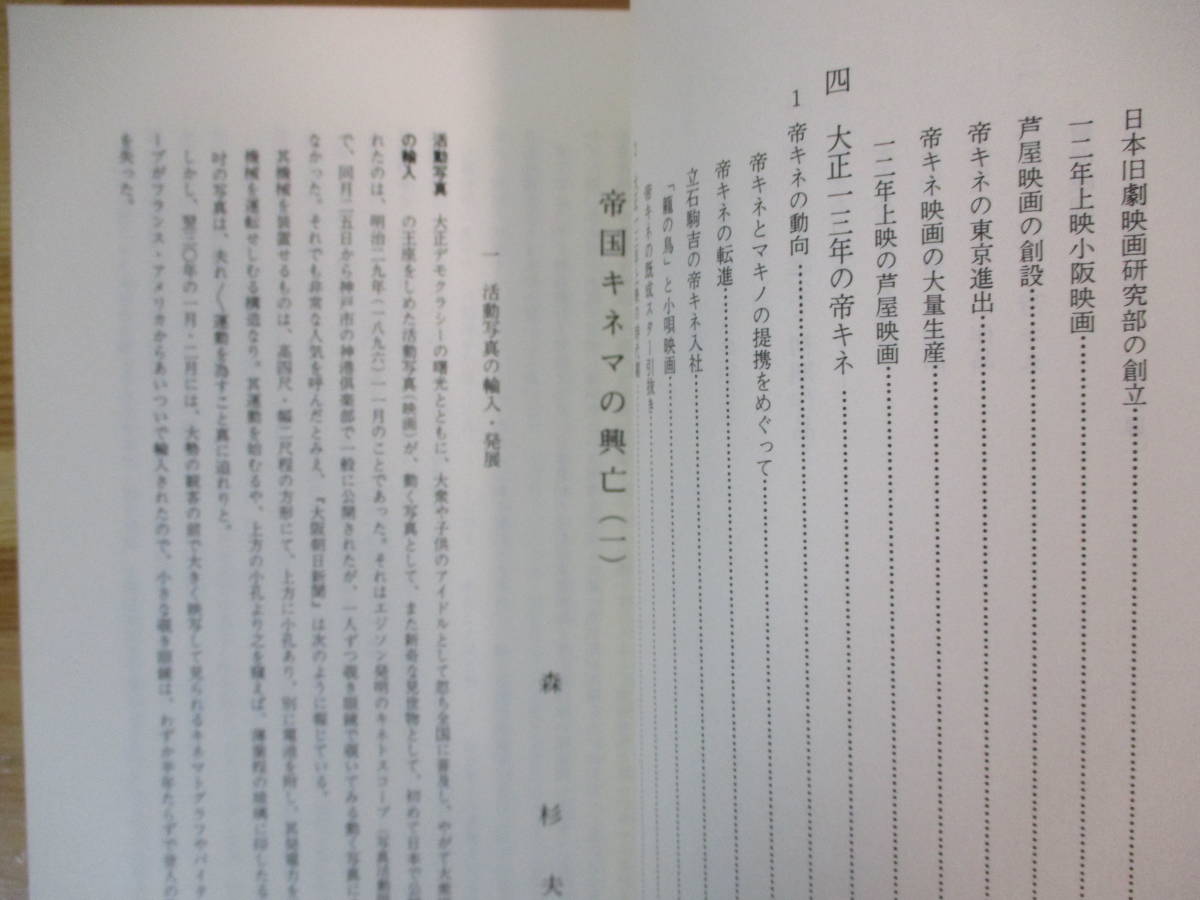 日本旧劇映画研究部の創立
一二年上映小阪映画
芦屋映画の創設
帝キネの東京進出
帝キネ映画の大量生産
一二年上映の芦屋映画
四 大正一三年の帝キネ
1 帝キネの動向
帝キネとマキノの提携をめぐって
帝キネの転進
立石駒吉の帝キネ入社
「籠の鳥」と小唄映画
帝キネの既成スター引抜き
帝国キネマの興亡(一)
森 杉夫
一 活動写真の輸入・発展
活動写真 大正デモクラシーの曙光とともに、大衆や子供のアイドルとして忽ち全国に普及し、やがて大衆
の輸入 の王座をしめた活動写真(映画)が、動く写真として、また新奇な見世物として、初めて日本で公
れたのは、明治二九年(一八九六)一一月のことであった。それはエジソン発明のキネトスコープ(写真活動
で、同月二五日から神戸市の神港倶楽部で一般に公開されたが、一人ずつ覗き眼鏡で覗いてみる動く写真に
なかった。それでも非常な人気を呼んだとみえ、『大阪朝日新聞』は次のように報じている。
其機械を装置せるものは、高四尺・幅二尺程の方形にて、上方に小孔あり。別に電池を附し、其発電力を
機械を運転せしむる構造なり。其運動を始むるや、上方の小孔より之を窺えば、薄葉程の玻璃に印したる
吋の写真は、夫れ〱運動を為すこと真に迫れりと。
しかし、翌三〇年の一月・二月には、大勢の観客の前で大きく映写して見られるキネマトグラフやバイタ
ープがフランス・アメリカからあいついで輸入されたので、小さな覗き眼鏡は、わずか半年たらずで昔人の
を失った。